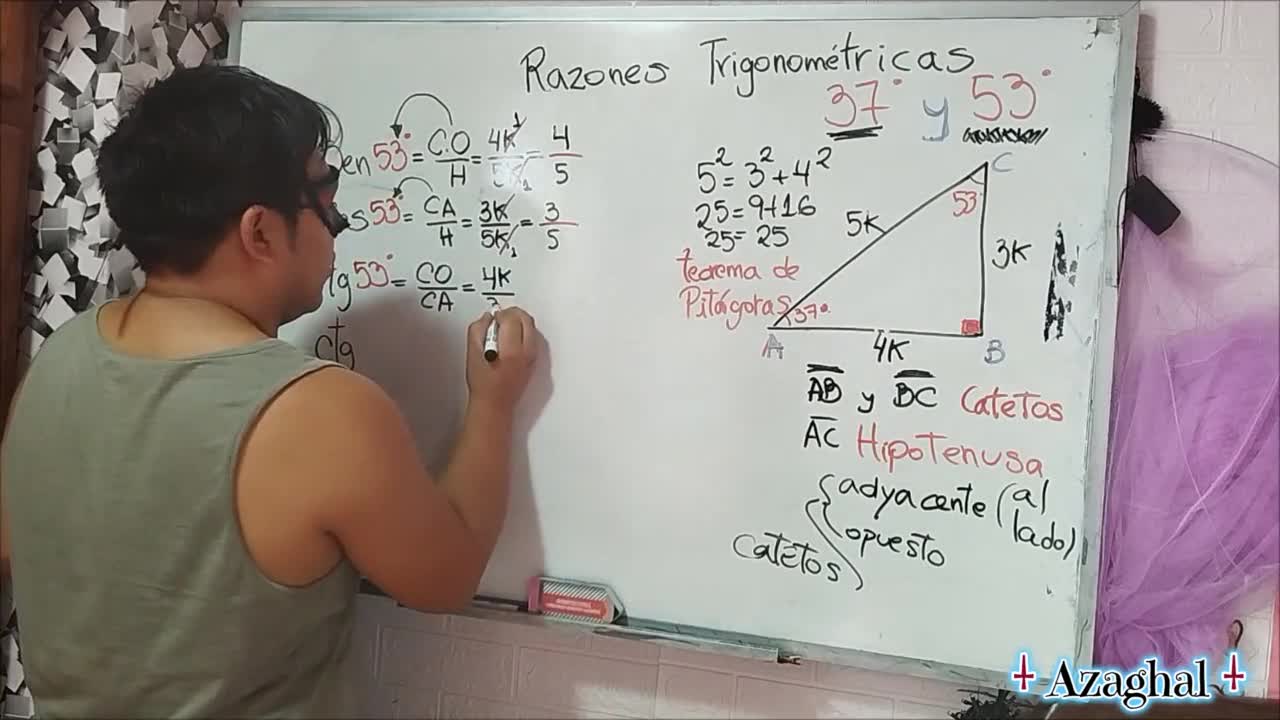 Razones Trigonométricas
37° y 53°
en 53° = C.O/H = 4K/5K = 4/5
s 53° = CA/H = 3K/5K = 3/5
tg 53° = CO/CA = 4K/
ctg
5² = 3² + 4²
25 = 9+16
25 = 25
teorema de
Pitágoras
C
53°
5K
3K
37°
A
4K
B
AB y BC Catetos
AC Hipotenusa
Catetos
adyacente (al lado)
opuesto
Azaghal